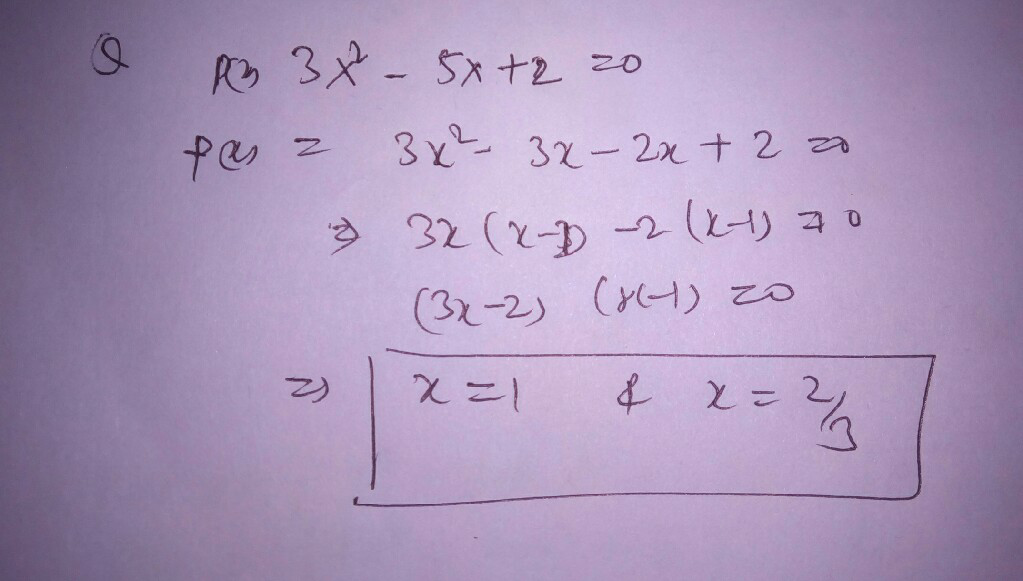 Q P(x) 3x² - 5x + 2 = 0
P(x) = 3x² - 3x - 2x + 2 = 0
⇒ 3x (x-1) -2 (x-1) = 0
(3x-2) (x-1) = 0
⇒ x = 1 & x = 2/3